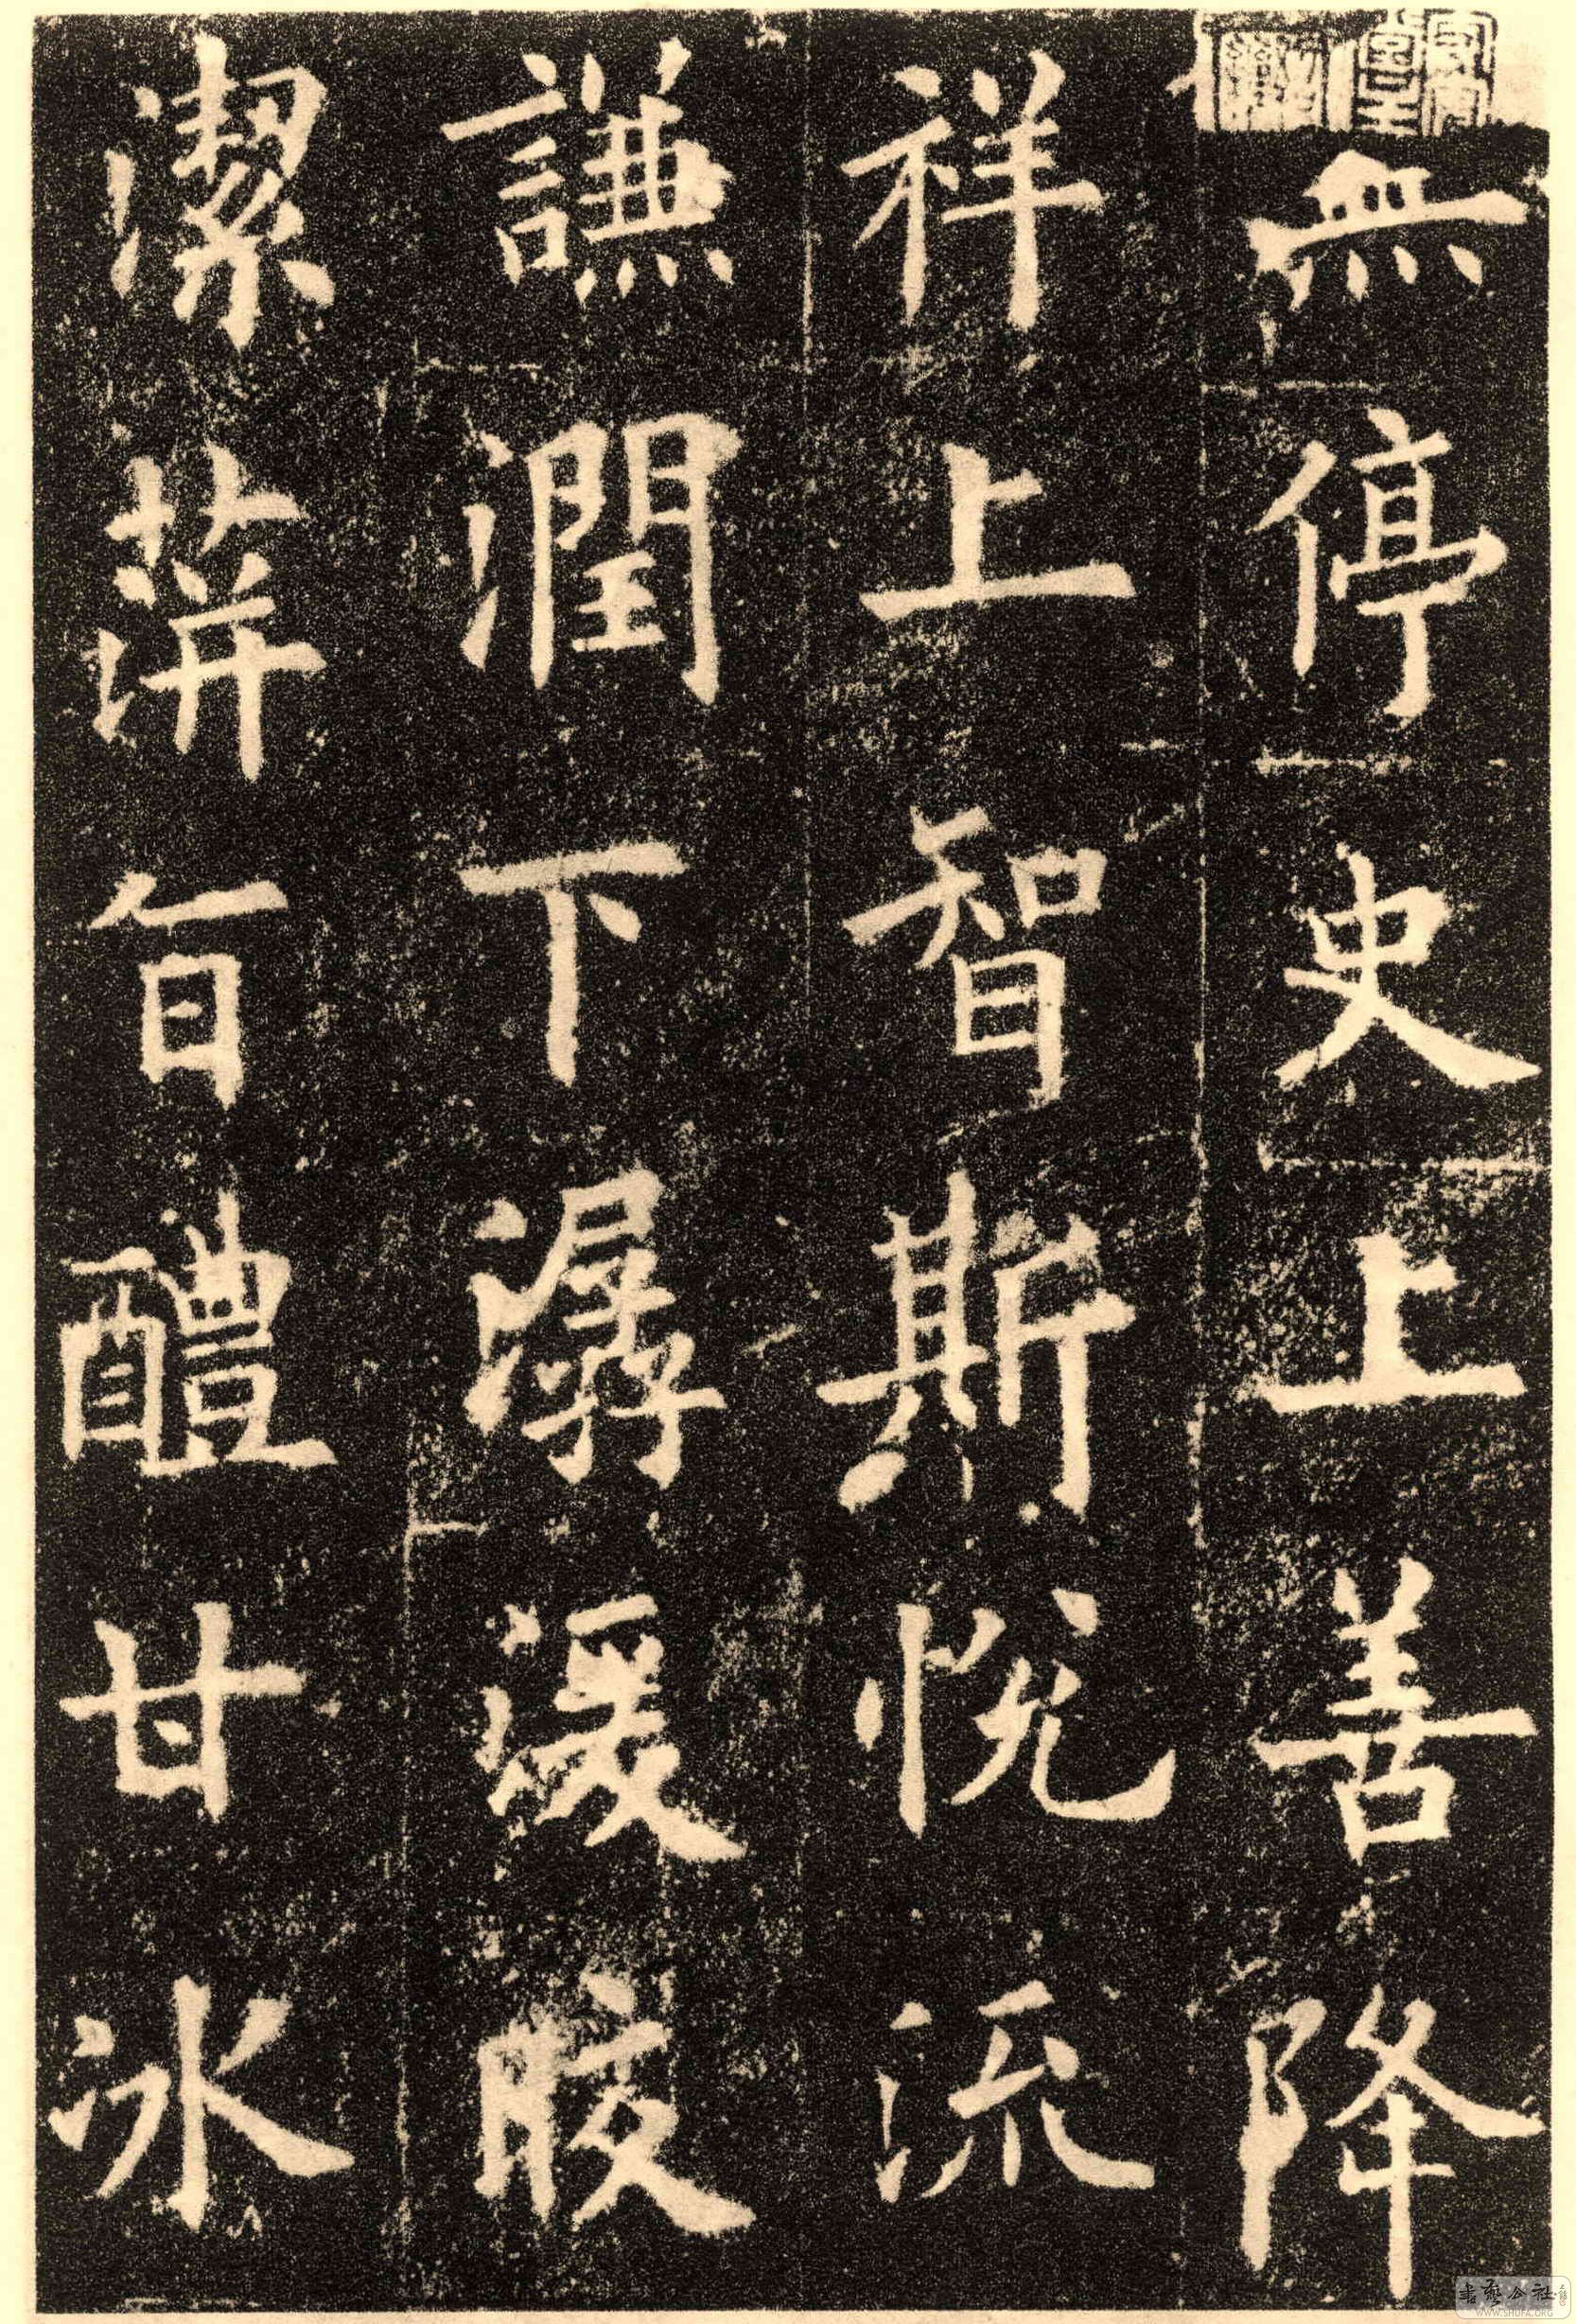 無停史上善降
祥上智斯悅流
謙潤下潺湲皎
潔蓱旨醴甘冰
書藝公社
WWW.SHUFA.ORG